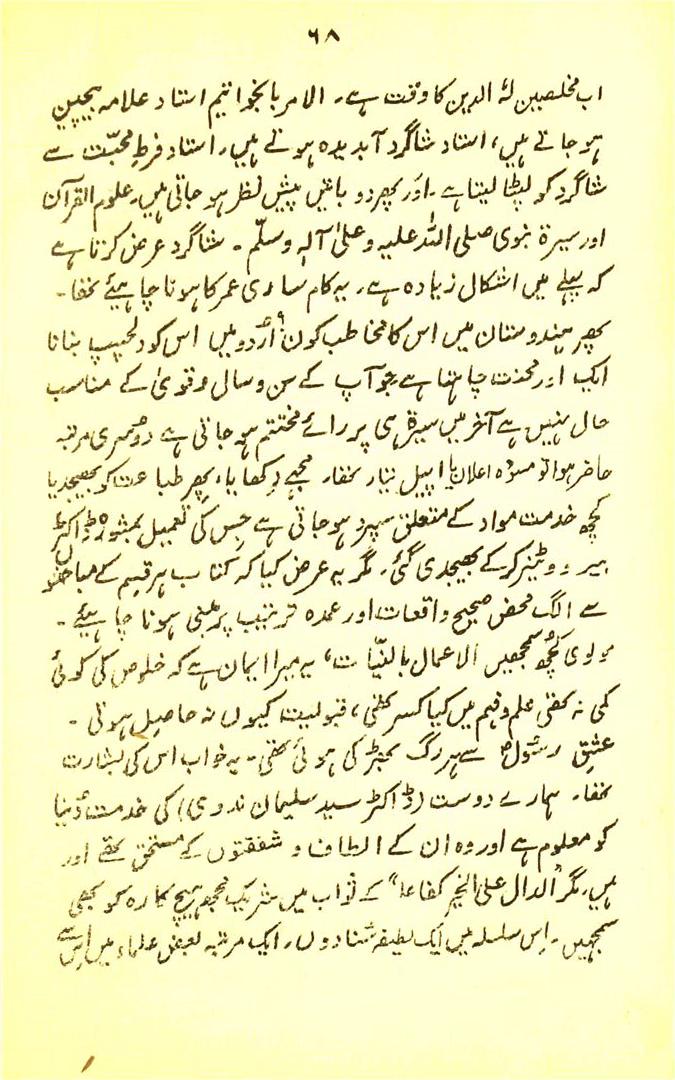 ۶۸
اب مخلصین لہٗ الدین کا وقت ہے۔ الامر بالخواتیم استاد علامہ بیچین
ہو جاتے ہیں، استاد شاگرد آبدیدہ ہوتے ہیں۔ استاد فرطِ محبّت سے
شاگرد کو لپٹا لیتا ہے۔ اور پھر دو باتیں پیش نظر ہو جاتی ہیں۔ علوم القرآن
اور سیرۃ نبوی صلی اللہ علیہ و علیٰ آلہٖ وسلّم ۔ شاگرد عرض کرتا ہے
کہ پہلے میں اشکال زیادہ ہے۔ یہ کام ساری عمر کا ہونا چاہیئے تھا۔
پھر ہندوستان میں اس کا مخاطب کون؟ اُردو میں اس کو دلچسپ بنانا
ایک اور محنت چاہتا ہے جو آپ کے سن و سال و قویٰ کے مناسب
حال نہیں ہے آخر میں سیرۃ ہی پر رائے مختتم ہو جاتی ہے دوسری مرتبہ
حاضر ہوا تو مسوّدہ اعلان یا اپیل تیار تھا۔ مجھے دکھایا، پھر طباعت کو بھیجدیا
کچھ خدمت مواد کے متعلق سپرد ہو جاتی ہے جس کی تعمیل بمشورہ ڈاکٹر
ہیروویٹز کر کے بھیجدی گئی۔ مگر یہ عرض کیا کہ کتاب ہر قسم کے مباحثوں
سے الگ محض صحیح واقعات اور عمدہ ترتیب پر مبنی ہونا چاہیئے۔
مولوی کچھ سمجھیں الاعمال بالنیّات، یہ میرا ایمان ہے کہ خلوص کی کوئی
کمی نہ تھی علم و فہم میں کیا کسر تھی، قبولیت کیوں نہ حاصل ہوتی ۔
عشقِ رسولؐ سے ہر رگ پھڑکی ہوئی تھی۔ یہ خواب اس کی بشارت
تھا۔ ہمارے دوست (ڈاکٹر سید سلیمان ندوی) کی خدمت دُنیا
کو معلوم ہے اور وہ ان کے الطاف و شفقتوں کے مستحق تھے اور
ہیں۔ مگر "الدال علی الخیر کفاعلہ" کے ثواب میں شریک مجھ ہیچ کارہ کو بھی
سمجھیں۔ اِس سلسلہ میں ایک لطیفہ سُنا دوں۔ ایک مرتبہ بعض علماء میں اِس سے